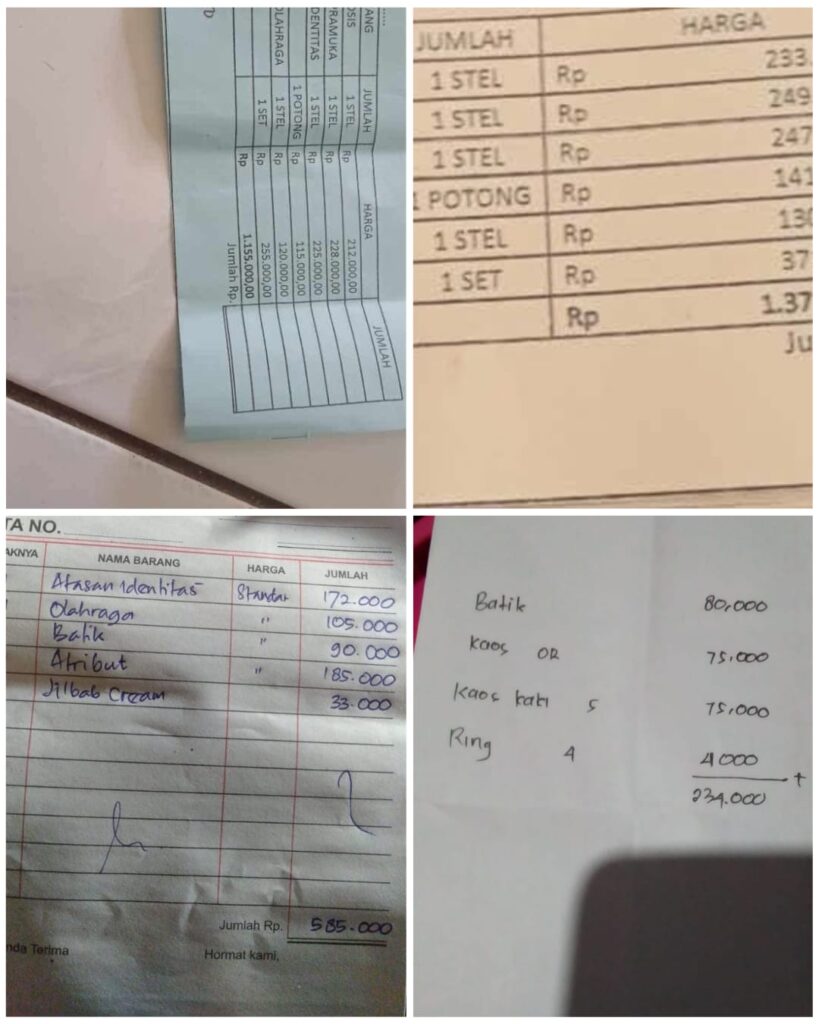 ANG JUMLAH HARGA JUMLAH
OSIS 1 STEL Rp 212.000,00
PRAMUKA 1 STEL Rp 228.000,00
DENTITAS 1 STEL Rp 225.000,00
1 POTONG Rp 115.000,00
OLAHRAGA 1 STEL Rp 120.000,00
1 SET Rp 255.000,00
Rp 1.155.000,00
Jumlah Rp.
JUMLAH HARGA
1 STEL Rp 233.
1 STEL Rp 249
1 STEL Rp 247
1 POTONG Rp 141
1 STEL Rp 130
1 SET Rp 37
Rp 1.37
Ju
TA NO.
AKNYA NAMA BARANG HARGA JUMLAH
Atasan Identitas Standar 172.000
Olahraga " 105.000
Batik " 90.000
Atribut " 185.000
Jilbab Cream 33.000
Jumlah Rp. 585.000
nda Terima Hormat kami,
Batik 80,000
Kaos OR 75,000
Kaos kaki 5 75,000
Ring 4 4000 +
234.000